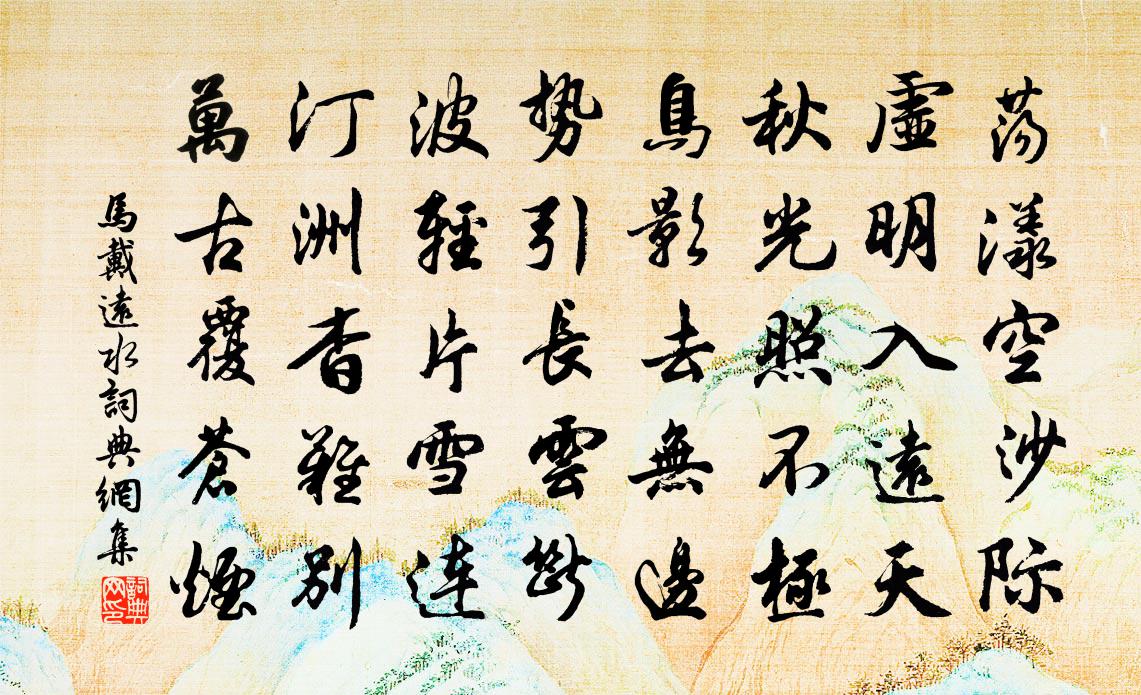 蕩漾空沙际
虛明入遠天
秋光照不極
鳥影去無邊
势引長雲斷
波輕片雪連
汀洲杳難別
萬古覆蒼煙
馬戴遠水詞典網集
詞典网印